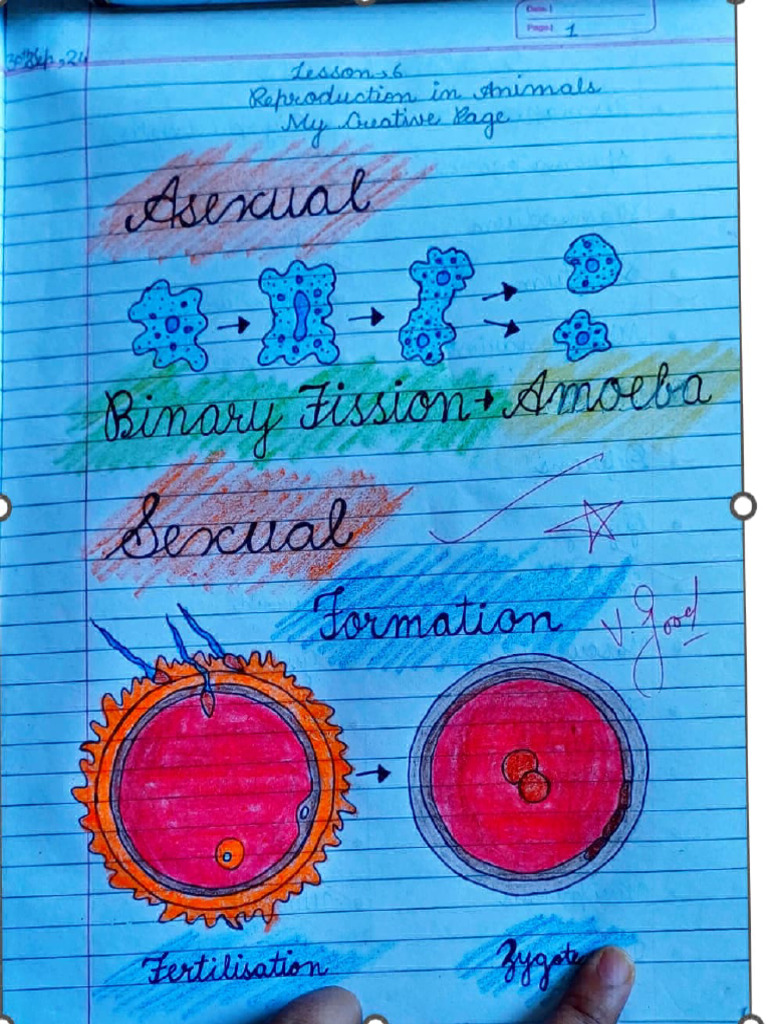 Date:
Page: 1
30th Sep, 24
Lesson-6
Reproduction in Animals
My Creative Page
Asexual
Binary Fission → Amoeba
Sexual
Formation
V. Good
Fertilisation
Zygote